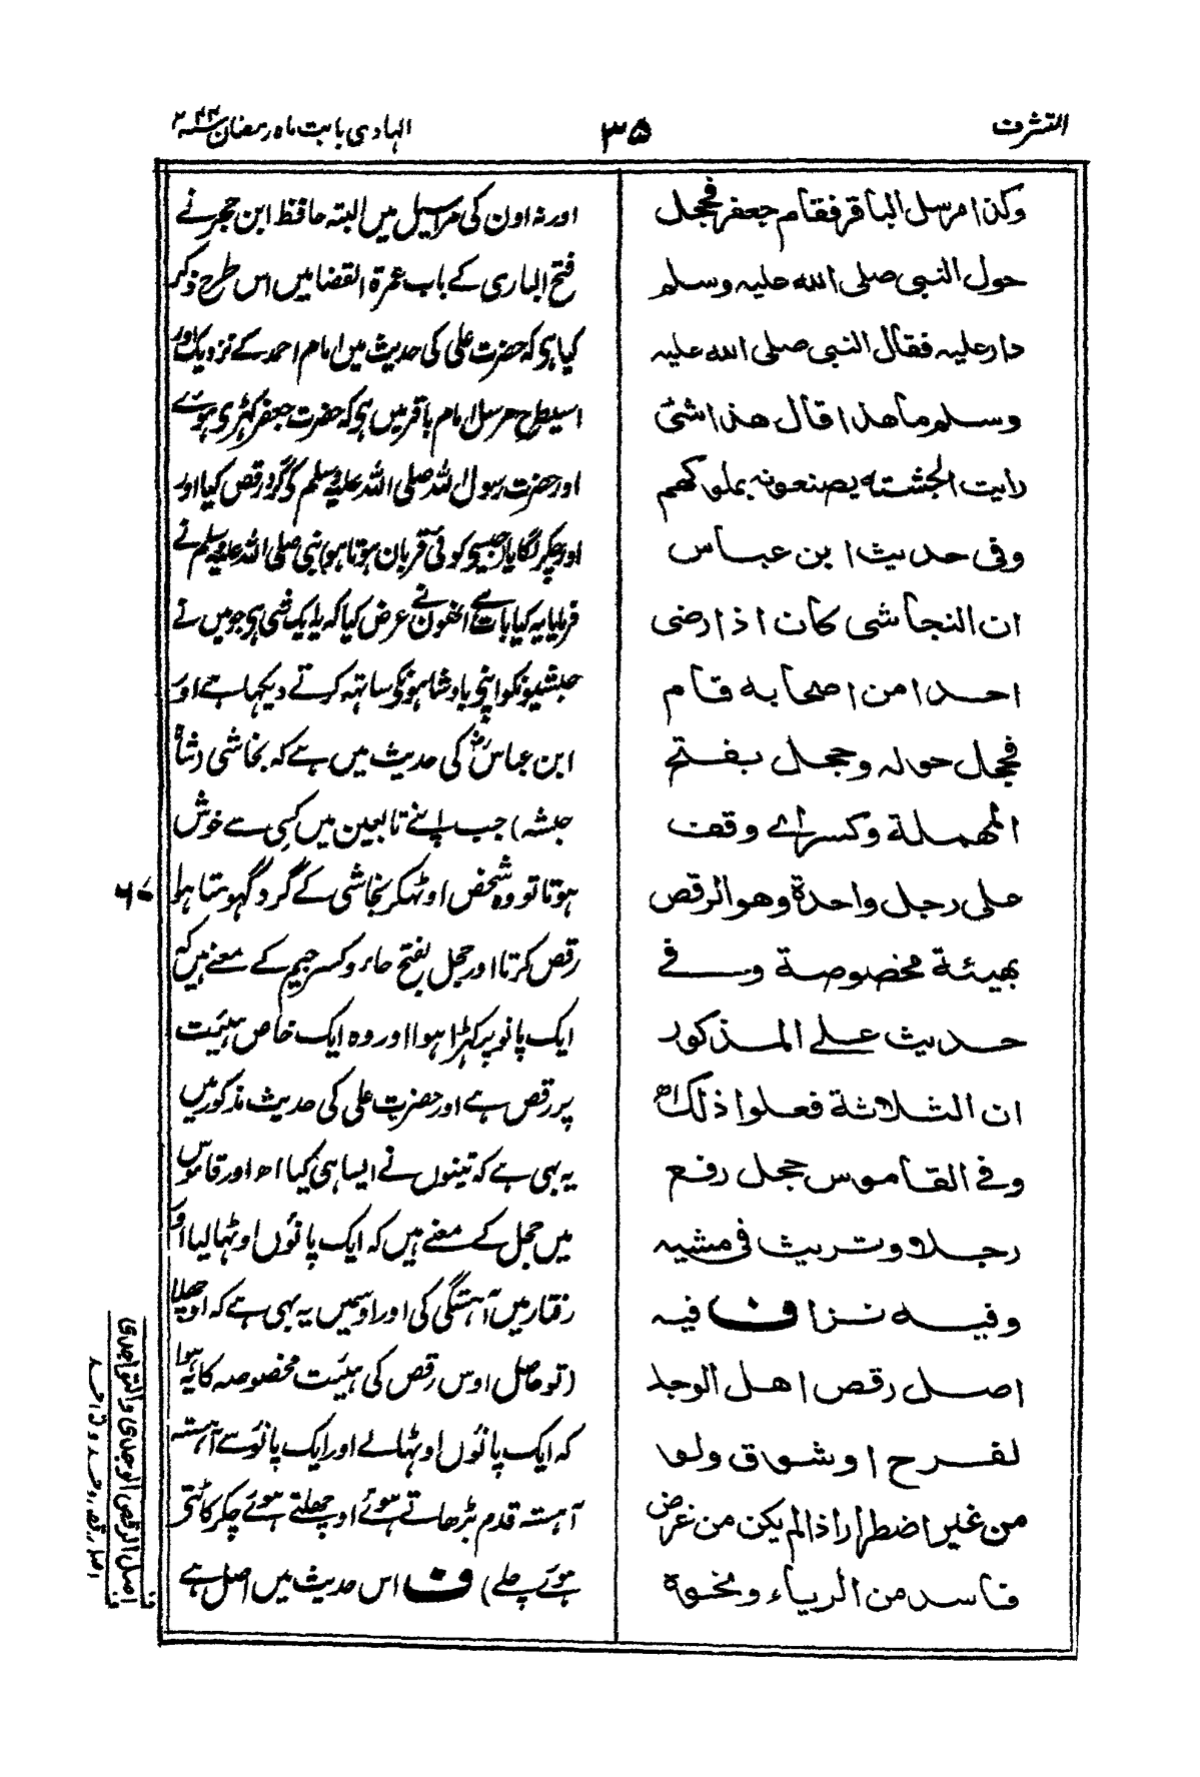 التشرف
۳۵
الہادی بابت ماہ رمضان سنہ ۴۴
وكذا مرسل الباقر فقام جعفر فحجل
حول النبی صلی الله علیہ وسلم
دار علیہ فقال النبی صلی الله علیہ
وسلم ما هذا قال هذا شئ
رایت الحبشتہ یصنعونہ بملوکهم
وفی حدیث ابن عباس
ان النجاشی کان اذا رضی
احدا من اصحابہ قام
فحجل حوله وحجل بفتح
المهملة وکسر اے وقف
علی رجل واحدة وهو الرقص
بهیئة مخصوصة وفے
حدیث علے المذکور
ان الثلاثة فعلوا ذلك اھ
وفے القاموس حجل رفع
رجلا وتریث فی مشیہ
وفیہ نزا ف فیہ
اصل رقص اهل الوجد
لفرح او شوق ولو
من غیر اضطرار اذا لم یکن من غرض
فاسد من الریاء ونحوہ
اور نہ اون کی مراسیل میں البتہ حافظ ابن حجر نے
فتح الباری کے باب عمرة القضا میں اس طرح ذکر
کیا ہی کہ حضرت علی کی حدیث میں امام احمد کے نزدیک اور
اسیطرح مرسل امام باقر میں ہی کہ حضرت جعفر کہڑی ہوئے
اور حضرت رسول اللہ صلی اللہ علیہ وسلم کے گرد رقص کیا اور
اور چکر لگایا جیسے کوئی قربان ہوتا ہو نبی صلی اللہ علیہ وسلم نے
فرمایا یہ کیا بات ہے انھوں نے عرض کیا کہ یہ ایک شی ہی جو میں نے
حبشیونکو اپنی بادشاہونکے ساتہہ کرتے دیکہا ہے اور
ابن عباس کی حدیث میں ہے کہ نجاشی (شاہ
حبشہ) جب اپنے تابعین میں کسی سے خوش
ہوتا تو وہ شخص اوٹہکر نجاشی کے گرد گہومتا ہوا
رقص کرتا اور حجل بفتح حاء و کسر جیم کے معنے ہیں کہ
ایک پانو پر کہڑا ہوا اور وہ ایک خاص ہیئت
پر رقص ہے اور حضرت علی کی حدیث مذکور میں
یہ بہی ہے کہ تینوں نے ایسا ہی کیا اھ اور قاموس
میں حجل کے معنے ہیں کہ ایک پانوں اوٹہا لیا اور
رفتار میں آہستگی کی اور اوسمیں یہ بہی ہے کہ اوچہلا
(تو حاصل اوس رقص کی ہیئت مخصوصہ کا یہ ہوا
کہ ایک پانوں اوٹہالے اور ایک پانو سے آہستہ
آہستہ قدم بڑھاتے ہوئے اوچھلتے ہوئے چکر کاٹتی
ہوئے چلے) ف اس حدیث میں اصل ہے
۶۷
اصل الرقص الوجدی والتواجدی
اصل رقص وجد و تواجد